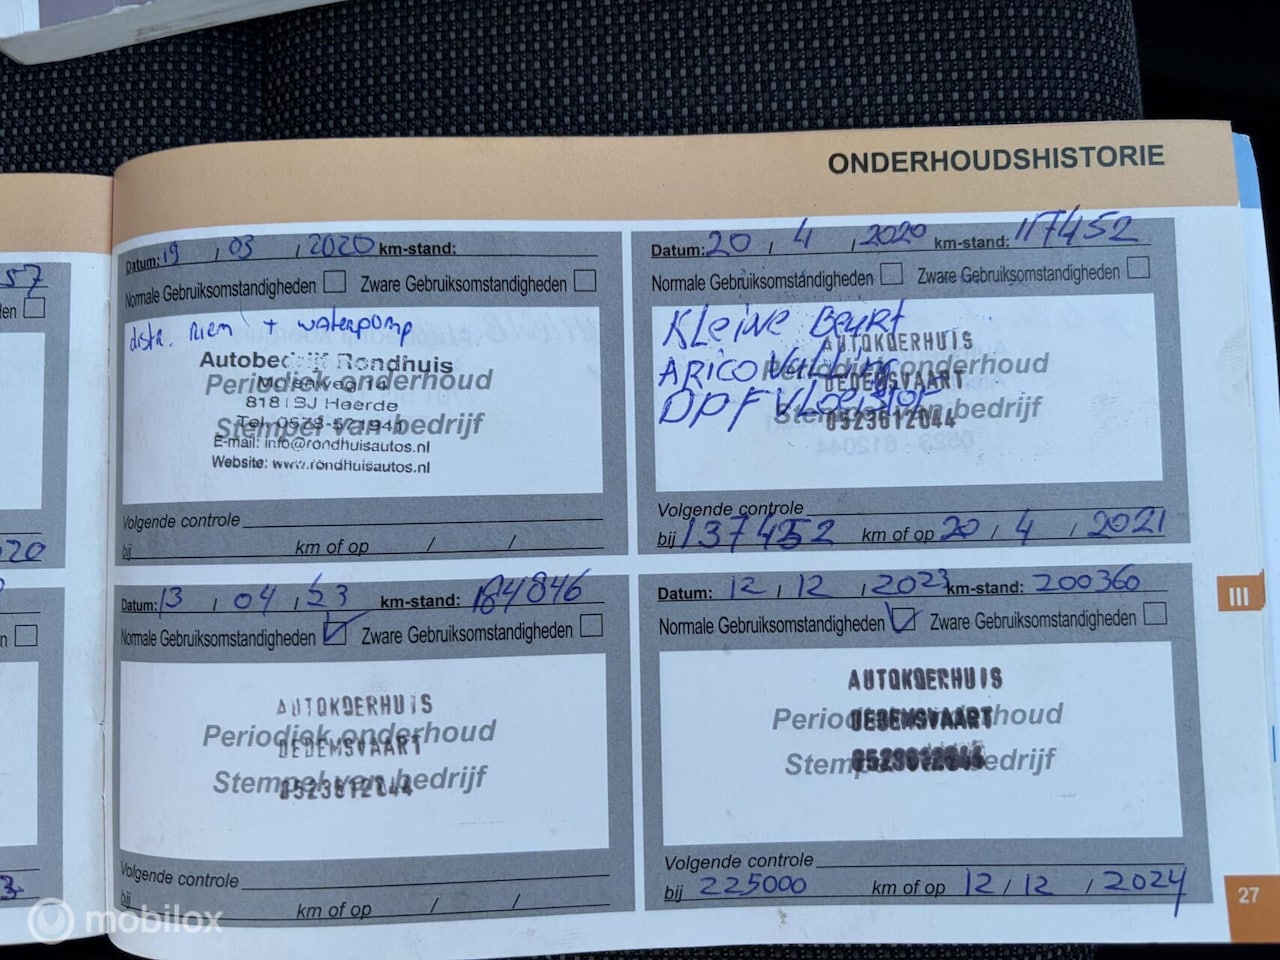 ONDERHOUDSHISTORIE
57
Datum: 19 / 03 / 2020 km-stand:
Normale Gebruiksomstandigheden Zware Gebruiksomstandigheden
distr. riem + waterpomp
Autobedrijf Rondhuis
Periodiek onderhoud
Molenweg 14
8181 SJ Heerde
Stempel van bedrijf
E-mail: info@rondhuisautos.nl
Website: www.rondhuisautos.nl
Volgende controle
bij km of op / /
Datum: 20 / 4 / 2020 km-stand: 117452
Normale Gebruiksomstandigheden Zware Gebruiksomstandigheden
Kleine Beurt
AUTOKOERHUIS
ARICO Vulling
Periodiek onderhoud
DEDEMSVAART
DPF Vloeistof
Stempel van bedrijf
0523612044
Volgende controle
bij 137452 km of op 20 / 4 / 2021
20
Datum: 13 / 04 / 23 km-stand: 184846
Normale Gebruiksomstandigheden Zware Gebruiksomstandigheden
AUTOKOERHUIS
Periodiek onderhoud
DEDEMSVAART
Stempel van bedrijf
0523612044
Volgende controle
bij km of op / /
Datum: 12 / 12 / 2023 km-stand: 200360
Normale Gebruiksomstandigheden Zware Gebruiksomstandigheden
AUTOKOERHUIS
Periodiek onderhoud
DEDEMSVAART
Stempel van bedrijf
0523612044
Volgende controle
bij 225000 km of op 12 / 12 / 2024
III
27
mobilox